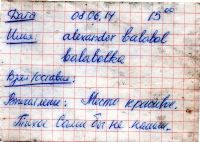 Дата 08.06.14 15 00
Имя: alexander balabol
balabolka
Взял/оставил:
Впечатление: Место красивое.
Тихое Сами бы не нашли..